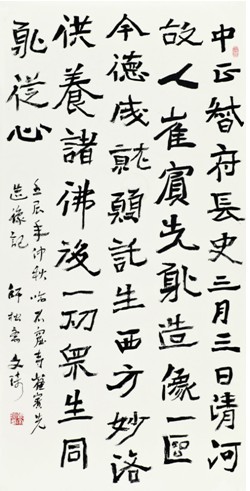 中正督府長史三月三日清河
故人崔賓先所造像一區
今德成就願託生西方妙洛
供養諸佛後一切眾生同
所從心
壬辰年仲秋臨石窟寺崔賓先
造像記 師松齋 文琦